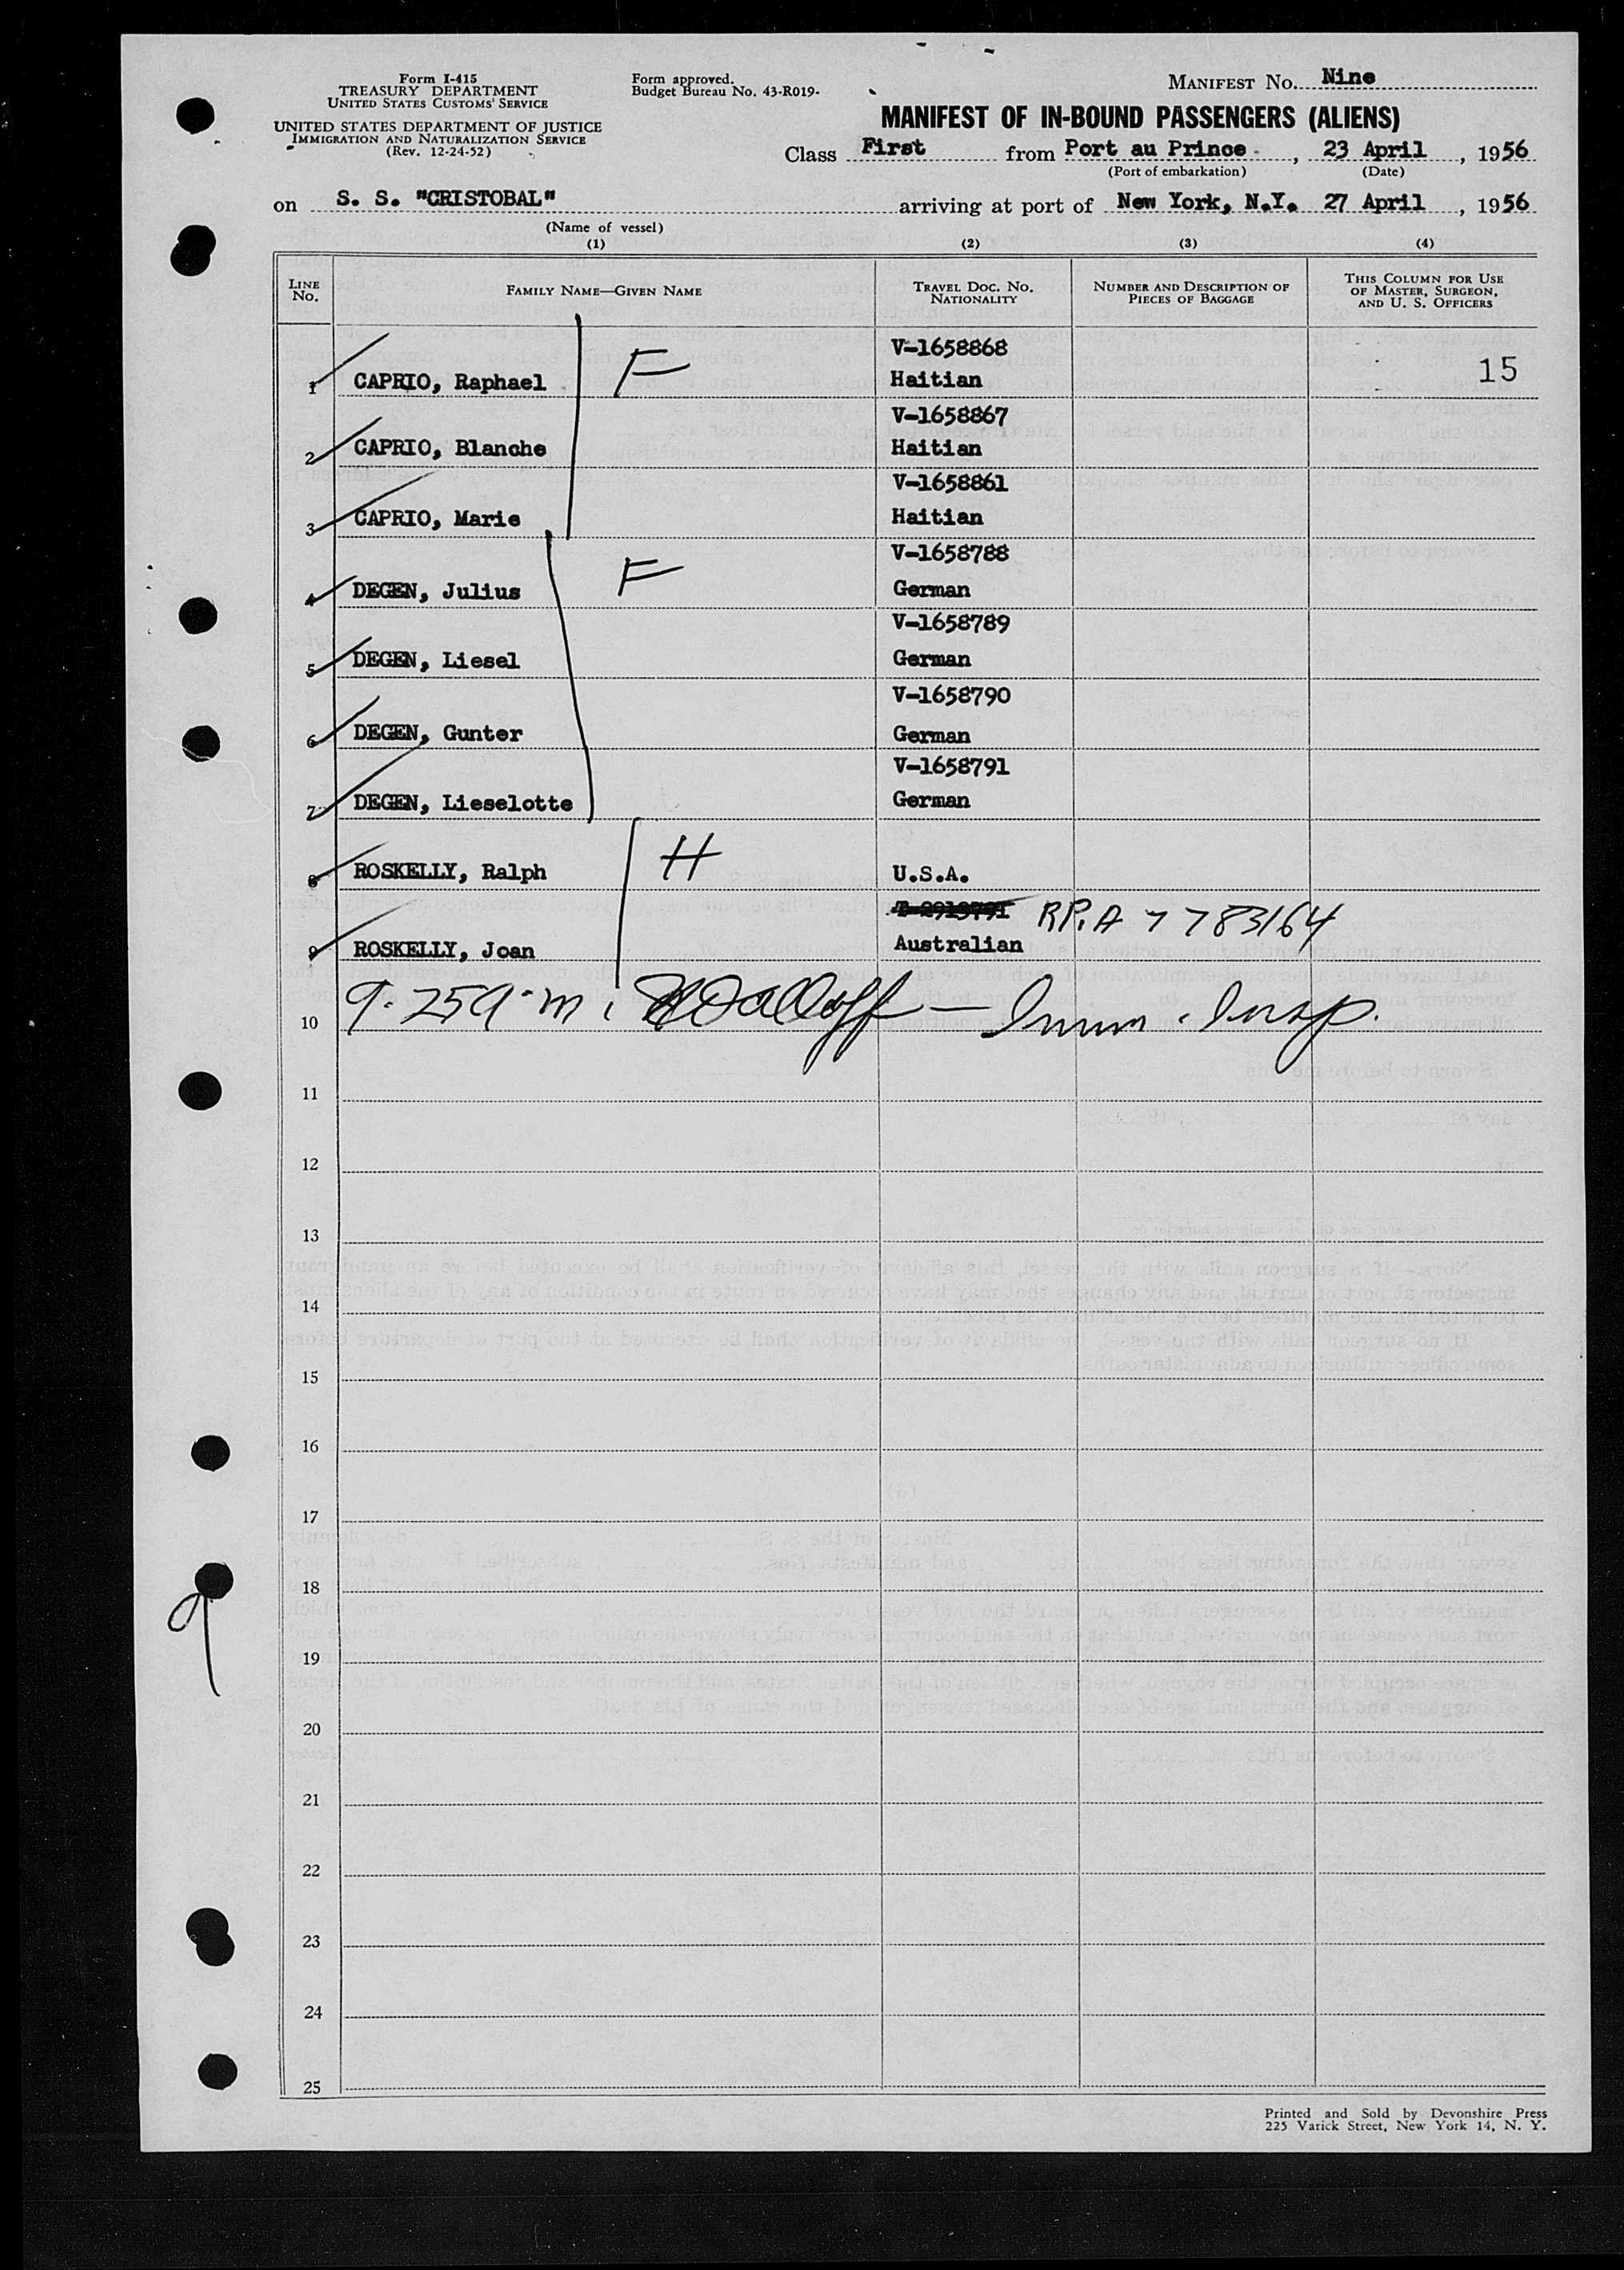 Form I-415
TREASURY DEPARTMENT
UNITED STATES CUSTOMS' SERVICE
UNITED STATES DEPARTMENT OF JUSTICE
IMMIGRATION AND NATURALIZATION SERVICE
(Rev. 12-24-52)
Form approved.
Budget Bureau No. 43-R019-
MANIFEST No. Nine
MANIFEST OF IN-BOUND PASSENGERS (ALIENS)
Class First from Port au Prince, 23 April, 1956
(Port of embarkation) (Date)
on S. S. "CRISTOBAL" arriving at port of New York, N.Y. 27 April, 1956
(Name of vessel)
(1) (2) (3) (4)
LINE No. FAMILY NAME—GIVEN NAME TRAVEL DOC. NO. NATIONALITY NUMBER AND DESCRIPTION OF PIECES OF BAGGAGE THIS COLUMN FOR USE OF MASTER, SURGEON, AND U. S. OFFICERS
V-1658868
1 CAPRIO, Raphael F Haitian 15
V-1658867
2 CAPRIO, Blanche Haitian
V-1658861
3 CAPRIO, Marie Haitian
V-1658788
4 DEGEN, Julius F German
V-1658789
5 DEGEN, Liesel German
V-1658790
6 DEGEN, Gunter German
V-1658791
7 DEGEN, Lieselotte German
8 ROSKELLY, Ralph H U.S.A.
RP. A 7783164
9 ROSKELLY, Joan Australian
10 9.25 a.m. — Imm. Insp.
11
12
13
14
15
16
17
18
19
20
21
22
23
24
25
Printed and Sold by Devonshire Press
225 Varick Street, New York 14, N. Y.